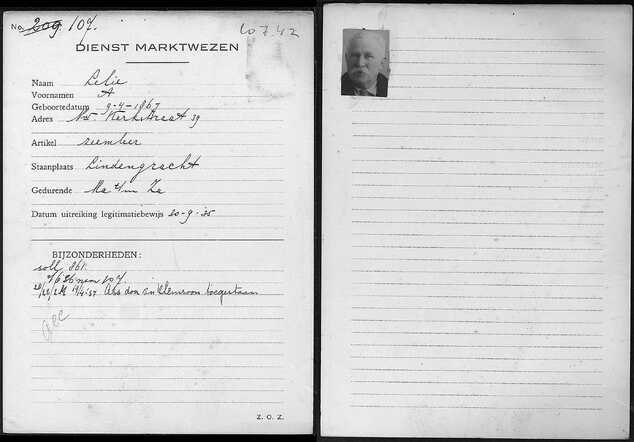 No. 209. 107.
10.7.42
DIENST MARKTWEZEN
Naam Lelie
Voornamen A
Geboortedatum 9-4-1867
Adres Nwe Kerkstraat 39
Artikel
Staanplaats Lindengracht
Gedurende Ma t/m Za
Datum uitreiking legitimatiebewijs 20-9-'35
BIJZONDERHEDEN:
soll. 861
nem 107
toegestaan
Z. O. Z.